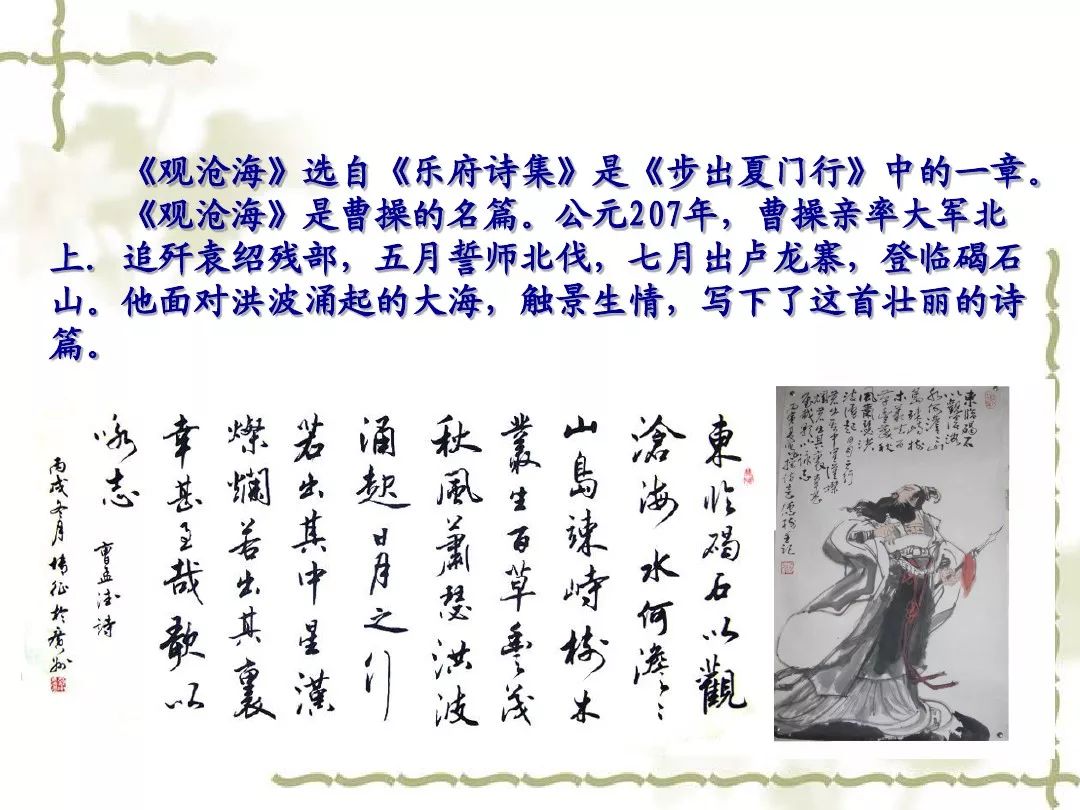 《观沧海》选自《乐府诗集》是《步出夏门行》中的一章。
《观沧海》是曹操的名篇。公元207年，曹操亲率大军北
上．追歼袁绍残部，五月誓师北伐，七月出卢龙寨，登临碣石
山。他面对洪波涌起的大海，触景生情，写下了这首壮丽的诗
篇。
東临碣石以觀
滄海水何澹々
山島竦峙樹木
叢生百草豐茂
秋風蕭瑟洪波
涌起日月之行
若出其中星漢
燦爛若出其裏
幸甚至哉歌以
咏志
曹孟德詩
丙戌冬月
東臨碣石
以觀滄海